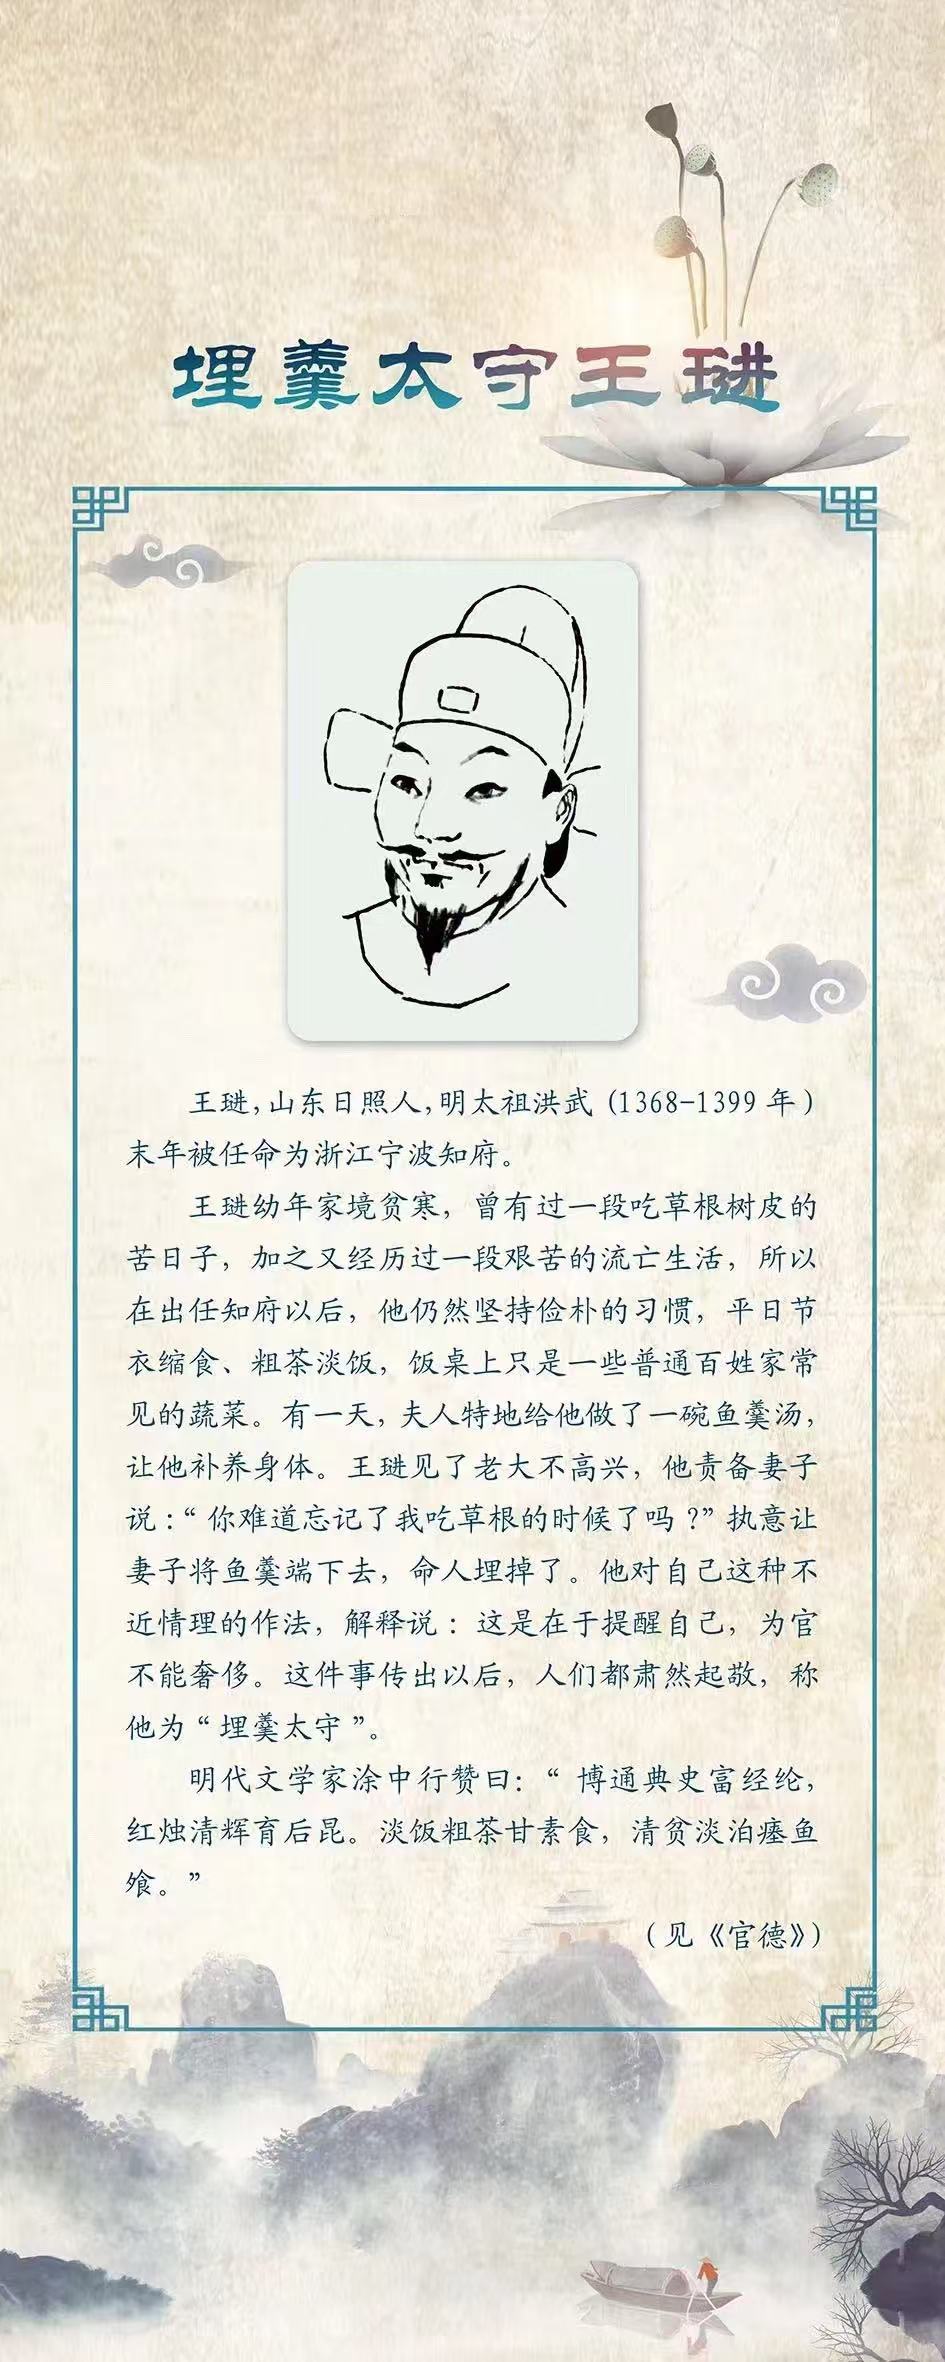 埋羹太守王琎
王琎,山东日照人,明太祖洪武(1368-1399年)
末年被任命为浙江宁波知府。
王琎幼年家境贫寒，曾有过一段吃草根树皮的
苦日子，加之又经历过一段艰苦的流亡生活，所以
在出任知府以后，他仍然坚持俭朴的习惯，平日节
衣缩食、粗茶淡饭，饭桌上只是一些普通百姓家常
见的蔬菜。有一天，夫人特地给他做了一碗鱼羹汤，
让他补养身体。王琎见了老大不高兴，他责备妻子
说：“你难道忘记了我吃草根的时候了吗？”执意让
妻子将鱼羹端下去，命人埋掉了。他对自己这种不
近情理的作法，解释说：这是在于提醒自己，为官
不能奢侈。这件事传出以后，人们都肃然起敬，称
他为“埋羹太守”。
明代文学家涂中行赞曰：“博通典史富经纶，
红烛清辉育后昆。淡饭粗茶甘素食，清贫淡泊瘗鱼
飧。”
（见《官德》）